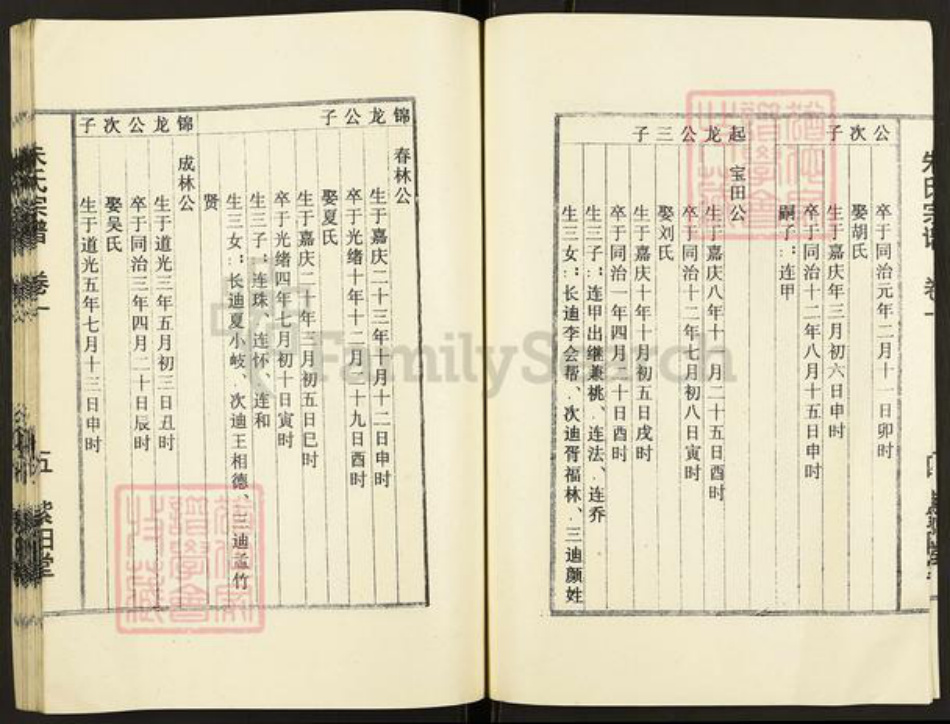 朱氏宗谱 卷一
公次子
卒于同治元年二月十一日卯时
娶胡氏
生于嘉庆年三月初六日申时
卒于同治十二年八月十五日申时
嗣子：连甲
起龙公三子
宝田公
生于嘉庆八年十一月二十五日酉时
卒于同治十二年七月初八日寅时
娶刘氏
生于嘉庆十年十月初五日戌时
卒于同治一年四月二十日酉时
生三子：连甲出继兼桃、连法、连乔
生三女：长迪李会帮、次迪胥福林、三迪颜姓
锦龙公子
春林公
生于嘉庆二十三年十月十二日申时
卒于光绪十年十二月二十九日酉时
娶夏氏
生于嘉庆二十年三月初五日巳时
卒于光绪四年七月初十日寅时
生三子：连珠、连怀、连和
生三女：长迪夏小岐、次迪王相德、三迪孟竹
贤
锦龙公次子
成林公
生于道光三年五月初三日丑时
卒于同治三年四月二十日辰时
娶吴氏
生于道光五年七月十三日申时
朱氏宗谱 卷一 五 紫阳堂
FamilySearch